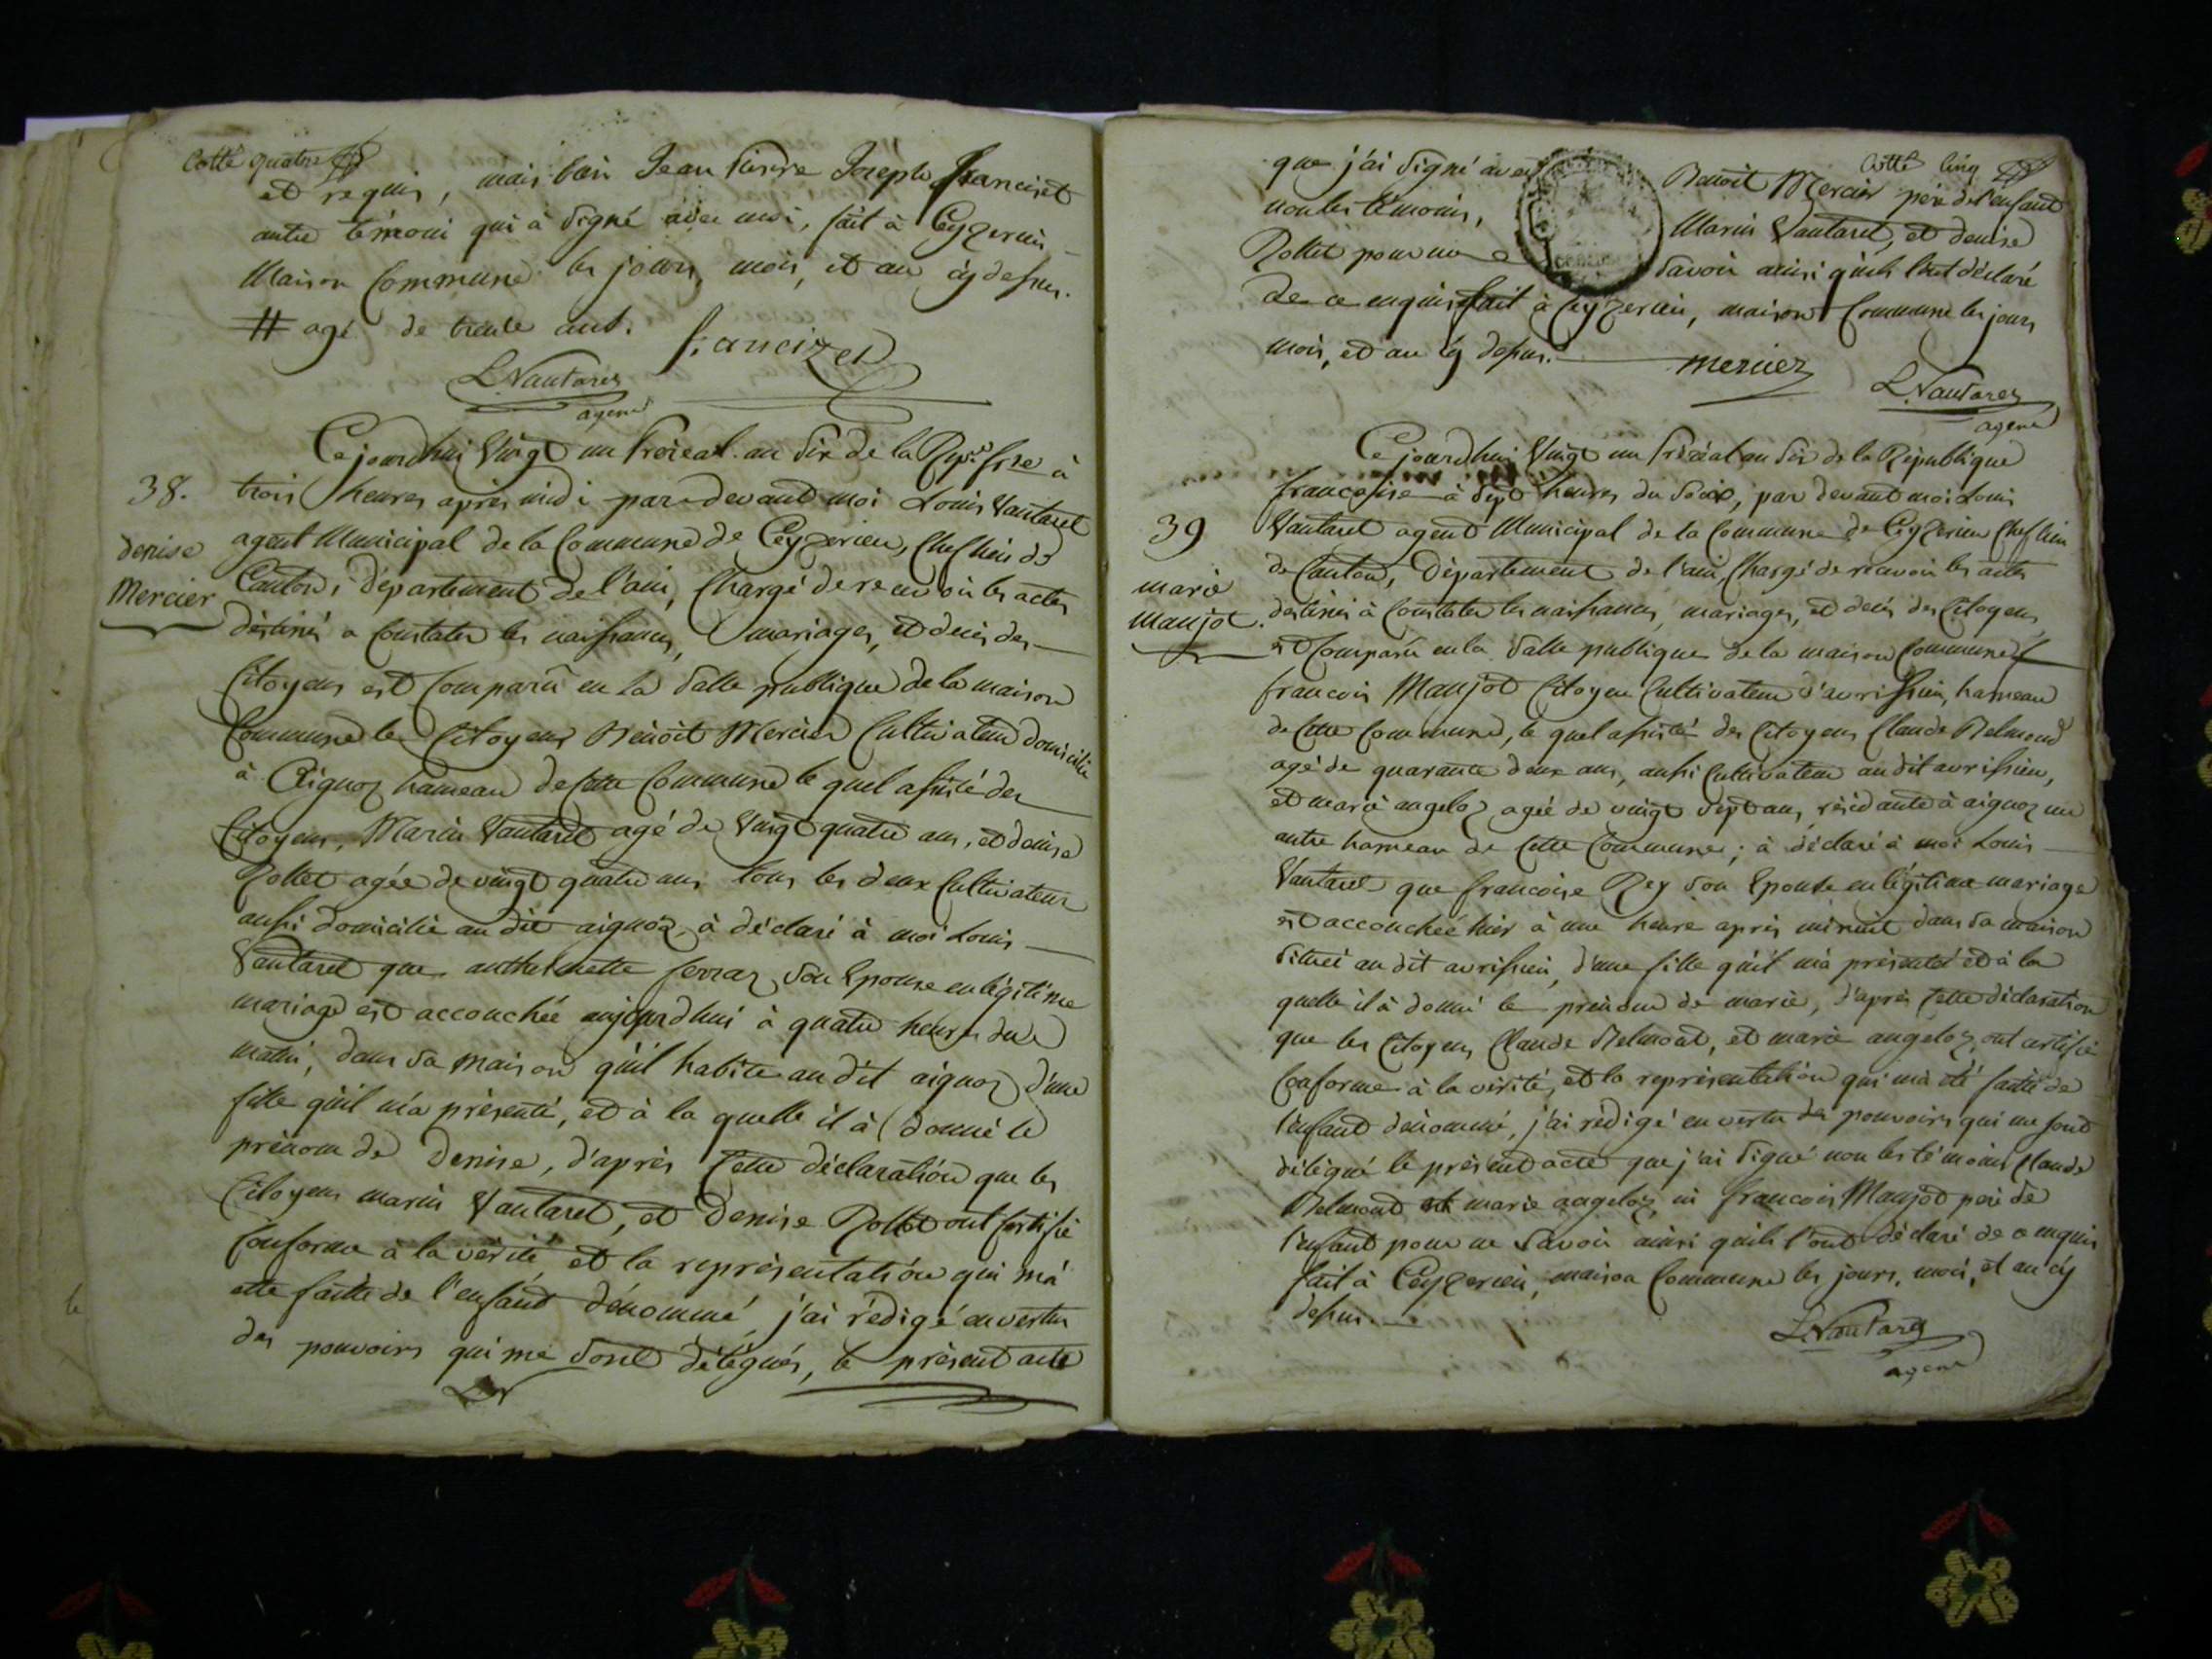 Cotté quatre
et requis, mais bien Jean Pierre Joseph Francizet
autre témoin qui à signé avec moi, fait à Ceyzerieu
Maison Commune les jours, mois, et an cy dessus.
# agé de trente ans.
francizet
L. Vautaret
agent
Ce jourdhui Vingt un Prérial an Six de la Rép.e frse à
38. trois heures après midi par devant moi Louis Vautaret
agent Municipal de la Commune de Ceyzerieu, Chef lieu de
denise
Mercier
Canton, département de l'ain, Chargé de recevoir les actes
destinés a Constater les naissances, mariages, et decès des
Citoyens est Comparû en la Salle publique de la maison
Commune le Citoyens Benoît Mercier Cultivateur domicilié
à Aignoz hameau de cette Commune le quel assisté des
Citoyens, Marin Vautaret agé de Vingt quatre ans, et denise
Rollet agée de vingt quatre ans tous les deux Cultivateur
aussi domicilié au dit aignoz, à déclaré à moi Louis
Vautaret que anthelmette ferraz son Epouse en légitime
mariage est accouchée aujourdhui à quatre heures du
matin, dans sa maison qu'il habite au dit aignoz d'une
fille qu'il m'a présenté, et à la quelle il à donné le
prénom de Denise, d'après Cette déclaration que les
Citoyens marin Vautaret, et Denise Rollet ont Certifié
Conforme à la vérité et la représentation qui m'à
etté faitte de l'enfant dénommé j'ai rédigé en vertu
des pouvoirs qui me sont délégués, le présent acte
LV
Cotté Cinq
que j'ai signé avec Benoit Mercier père de l'enfant
non les témoins, Marin Vautaret, et denise
Rollet pour ne savoir ainsi qu'ils l'ont déclaré
de ce enquis fait à Ceyzerieu, maison Commune les jours
mois, et an cy dessus.
mercier
L. Vautaret
agent
Ce jourdhui Vingt un Prérial an Six de la République
francaise à sept heures du soir, par devant moi Louis
39 Vautaret agent Municipal de la Commune de Ceyzerieu Chef lieu
de Canton, Département de l'ain, Chargé de recevoir les actes
marie
Manjot.
destinés à Constater les naissances, mariages, et decès des Citoyens
est Comparû en la Salle publique de la maison Commune
francois Manjot Citoyen Cultivateur d'avrissieu, hameau
de Cette Commune, le quel assisté des Citoyens Claude Belmond
agé de quarante deux ans, aussi Cultivateur au dit avrissieu,
et marie angeloz agée de vingt sept ans, résidante à aignoz un
autre hameau de Cette Commune; à déclaré à moi Louis
Vautaret que francoise Rey son Epouse en légitime mariage
est accouchée hier à une heure après minuit dans sa maison
située au dit avrissieu, d'une fille qu'il m'à présenté et à la
quelle il à donné le prénom de marie, d'après Cette déclaration
que les Citoyens Claude Belmont, et marie angeloz, ont certifié
Conforme à la vérité, et la représentation qui m'à été faitte de
l'enfant dénommé, j'ai rédigé en vertu des pouvoirs qui me sont
délégué le présent acte que j'ai signé non les témoins Claude
Belmond et marie angeloz, ni francois Manjot père de
l'enfant pour ne savoir ainsi qu'ils l'ont déclaré de ce enquis
fait à Ceyzerieu, maison Commune les jours, mois, et an cy
dessus.
L. Vautaret
agent